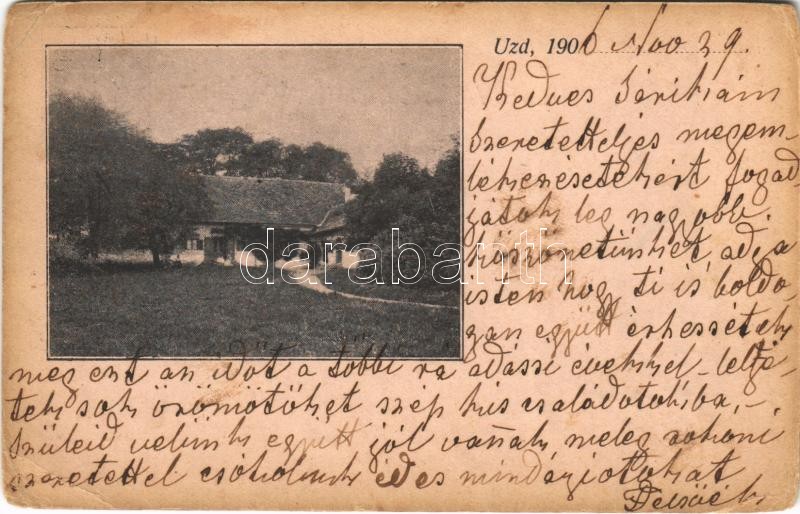 Uzd, 1906 Nov 29.
Kedves
szeretetteljes megem-
lékezésetekért fogad-
játok leg nagyobb
köszönetünket adja
isten hogy ti is boldo-
gan együtt érhessétek
meg ezt az időt a többi rá adassi évekkel – lelje-
tek sok örömötöket szép kis családotokba, –
Szüleid velünk együtt jól vannak meleg rokoni
szeretettel csókolunk édes mindnyiotokat
darabanth